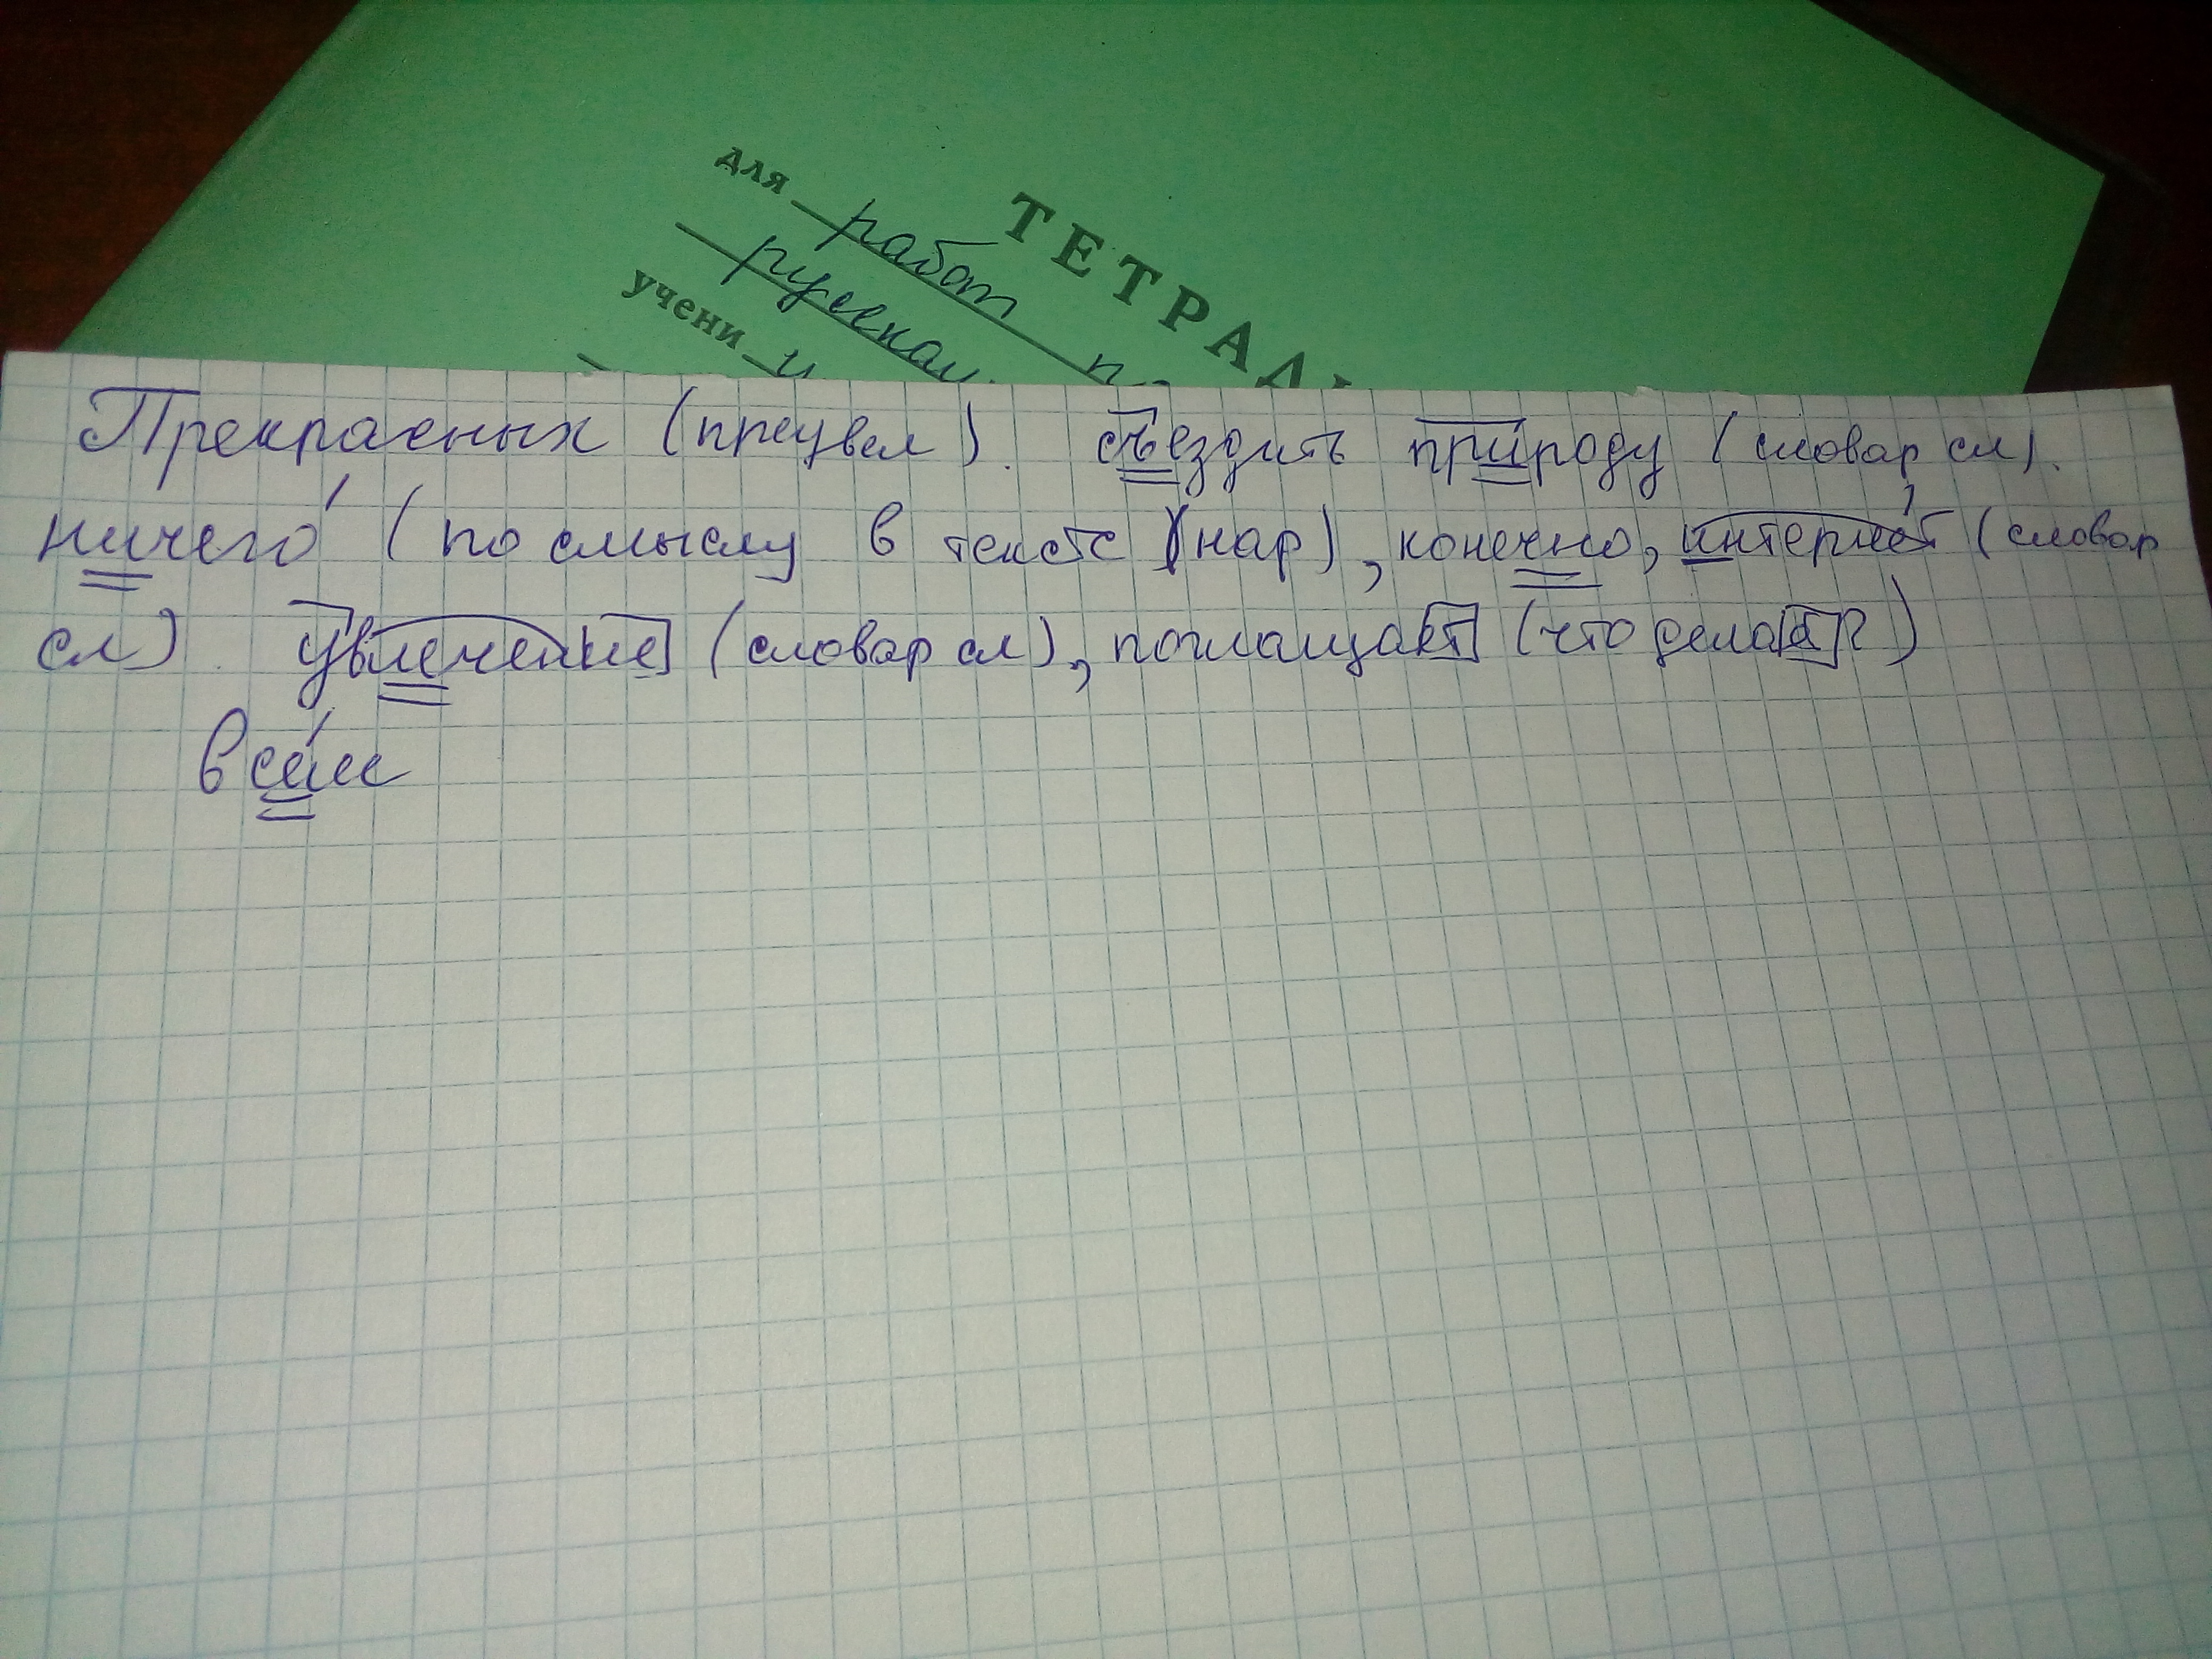 ТЕТРАДЬ
для работ п
русскому
учени и
Прекрасных (преувел). съездить природу (словар сл).
ничего (по смыслу в тексте (нар), конечно, интернет (словар
сл). увлечение (словар сл), поглощает (что делает?)
всем